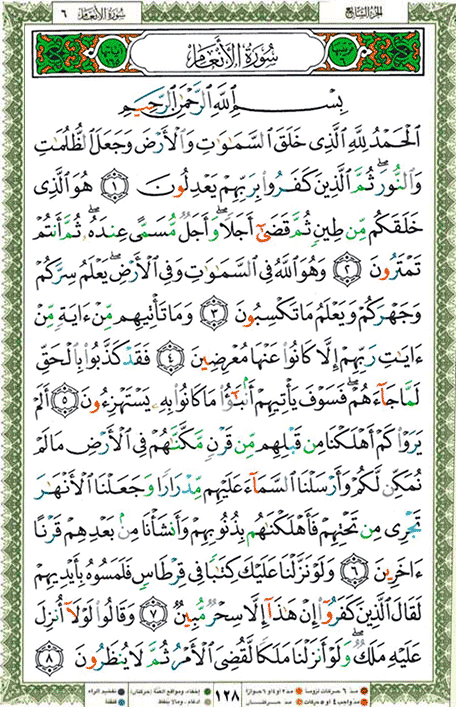 سُورَةُ الأَنْعَامِ ٦
الجزء السابع
سُورَةُ الأَنْعَامِ
بِسْمِ اللَّهِ الرَّحْمَٰنِ الرَّحِيمِ
الْحَمْدُ لِلَّهِ الَّذِي خَلَقَ السَّمَاوَاتِ وَالْأَرْضَ وَجَعَلَ الظُّلُمَاتِ
وَالنُّورَ ۖ ثُمَّ الَّذِينَ كَفَرُوا بِرَبِّهِمْ يَعْدِلُونَ ﴿١﴾ هُوَ الَّذِي
خَلَقَكُم مِّن طِينٍ ثُمَّ قَضَىٰ أَجَلًا ۖ وَأَجَلٌ مُّسَمًّى عِندَهُ ۖ ثُمَّ أَنتُمْ
تَمْتَرُونَ ﴿٢﴾ وَهُوَ اللَّهُ فِي السَّمَاوَاتِ وَفِي الْأَرْضِ ۖ يَعْلَمُ سِرَّكُمْ
وَجَهْرَكُمْ وَيَعْلَمُ مَا تَكْسِبُونَ ﴿٣﴾ وَمَا تَأْتِيهِم مِّنْ ءَايَةٍ مِّنْ
ءَايَاتِ رَبِّهِمْ إِلَّا كَانُوا عَنْهَا مُعْرِضِينَ ﴿٤﴾ فَقَدْ كَذَّبُوا بِالْحَقِّ
لَمَّا جَاءَهُمْ ۖ فَسَوْفَ يَأْتِيهِمْ أَنبَٰٓؤُا مَا كَانُوا بِهِ يَسْتَهْزِءُونَ ﴿٥﴾ أَلَمْ
يَرَوْا كَمْ أَهْلَكْنَا مِن قَبْلِهِم مِّن قَرْنٍ مَّكَّنَّاهُمْ فِي الْأَرْضِ مَا لَمْ
نُمَكِّن لَّكُمْ وَأَرْسَلْنَا السَّمَاءَ عَلَيْهِم مِّدْرَارًا وَجَعَلْنَا الْأَنْهَارَ
تَجْرِي مِن تَحْتِهِمْ فَأَهْلَكْنَاهُم بِذُنُوبِهِمْ وَأَنشَأْنَا مِن بَعْدِهِمْ قَرْنًا
ءَاخَرِينَ ﴿٦﴾ وَلَوْ نَزَّلْنَا عَلَيْكَ كِتَابًا فِي قِرْطَاسٍ فَلَمَسُوهُ بِأَيْدِيهِمْ
لَقَالَ الَّذِينَ كَفَرُوا إِنْ هَٰذَا إِلَّا سِحْرٌ مُّبِينٌ ﴿٧﴾ وَقَالُوا لَوْلَا أُنزِلَ
عَلَيْهِ مَلَكٌ ۖ وَلَوْ أَنزَلْنَا مَلَكًا لَّقُضِيَ الْأَمْرُ ثُمَّ لَا يُنظَرُونَ ﴿٨﴾
١٢٨